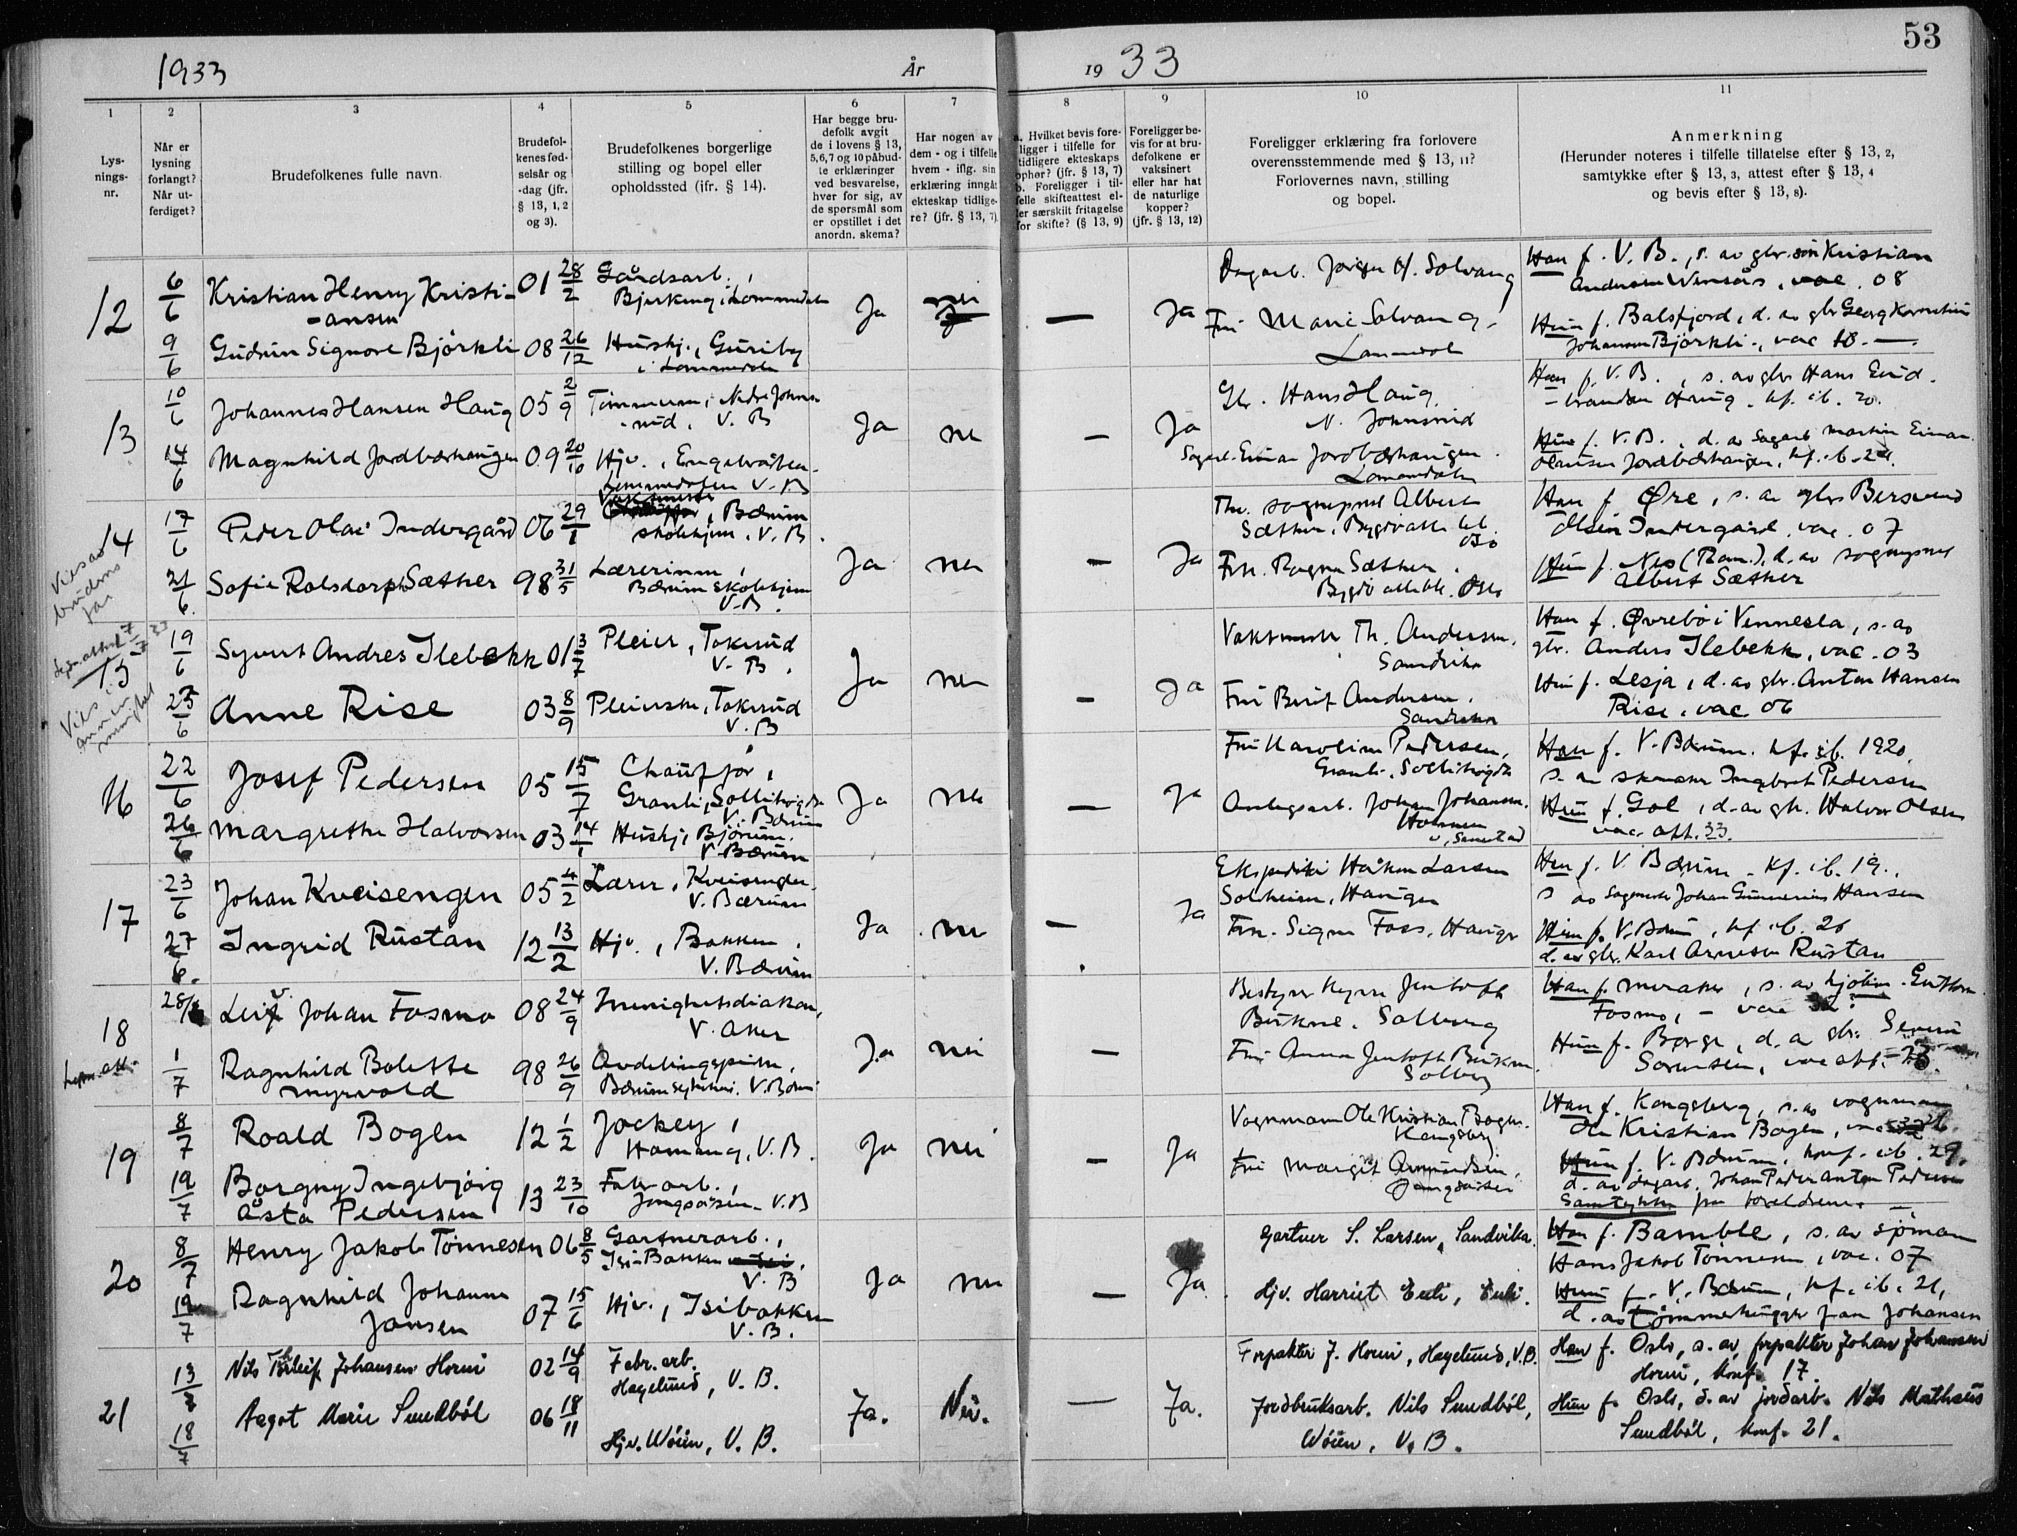 53
1933
År
19 33
1
2
3
4
5
6
7
8
9
10
11
Lys-
nings-
nr.
Når er
lysning
forlangt?
Når ut-
ferdiget?
Brudefolkenes fulle navn.
Brudefol-
kenes fød-
selsår og
-dag (jfr.
§ 13, 1, 2
og 3).
Brudefolkenes borgerlige
stilling og bopel eller
opholdssted (jfr. § 14).
Har begge bru-
defolk avgit
de i lovens § 13,
5,6,7 og 10 påbud-
te erklæringer
ved besvarelse,
hver for sig, av
de spørsmål som
er opstillet i det
anordn. skema?
Har nogen av
dem - og i tilfelle
hvem - iflg. sin
erklæring inngåt
ekteskap tidlige-
re? (jfr. § 13, 7)
a. Hvilket bevis fore-
ligger i tilfelle for
tidligere ekteskaps
ophør? (jfr. § 13, 7)
b. Foreligger i til-
felle skifteattest el-
ler særskilt fritagelse
for skifte? (§ 13, 9)
Foreligger be-
vis for at bru-
defolkene er
vaksinert
eller har hat
de naturlige
kopper?
(jfr. § 13, 12)
Foreligger erklæring fra forlovere
overensstemmende med § 13, 11?
Forlovernes navn, stilling
og bopel.
Anmerkning
(Herunder noteres i tilfelle tillatelse efter § 13, 2,
samtykke efter § 13, 3, attest efter § 13, 4
og bevis efter § 13, 8).
12
6/6
Kristian Henry Kristi-
-ansen
01 28/2
Gårdsarb.,
Ja
nei
—
Ja
Dagarb. Jørgen Solvang
Han f. V. B., s. av gbr. Kristian
Andersen, vac. 08
9/6
Gudrun Signore Bjørkli
08 26/12
Hushj., Guriby
i Lommedalen
Fru Marie Solvang,
Lommedal
Hun f. Balsfjord, d. av gbr Georg
Johansen Bjørkli, vac
13
10/6
Johannes Hansen Haug
05 2/9
V. B
Ja
nei
—
Ja
Gbr. Hans Haug
N. Johnsrud
Han f. V. B., s. av gbr Hans
Haug. kf. ib. 20.
14/6
Magnhild Jordbærhaugen
09 20/10
Hjv.,
Lommedalen V. B
Einar Jordbærhaugen
Lommedalen
Hun f. V. B., d. av Sagarb Martin Einar
Olausen Jordbærhaugen, kf. ib.
14
Vies av
brudens
far
17/6
Peder Olai Indergård
06 29/1
Vaktmester, Bærum
skolehjem. V. B.
Ja
nei
—
Ja
Th. sogneprest Albert
Sæther, Bygdø alle
Oslo
Han f. Øre, s. av gbr Bersvend
Olsen Indergård vac. 07
21/6
Sofie Rolsdorph Sæther
98 31/5
Lærerinne,
Bærum skolehjem
V. B.
Frk. Ragna Sæther
Bygdø alle Oslo
Hun f. Nes (Rom.), d. av sogneprest
Albert Sæther
15
Vies i
annen
menighet
19/6
Syvert Andres Ilebekk
01 3/7
Pleier, Tokerud
V. B.
Ja
nei
—
Ja
Vaktmester Th. Andersen.
Sandvika
Han f. Øvrebø i Vennesla, s. av
gbr. Anders Ilebekk, vac. 03
23/6
Anne Rise
03 8/9
Pleierske, Tokerud
V. B
Fru Berit Andersen.
Sandvika
Hun f. Lesja, d. av gbr. Anton Hansen
Rise, vac 06
16
22/6
Josef Pedersen
05 15/7
Chauffør,
Granli, Sollihøgda
V. Bærum
Ja
nei
—
Ja
Fru Karoline Pedersen,
Granli, Sollihøgda
Han f. V. Bærum. kf. ib. 1920,
s. av Ingbret Pedersen
26/6
Margrethe Halvorsen
03 14/1
Hushj. Bjørum.
V. Bærum
Anlegsarb. Johan Johansen.
Hun f. Gol, d. av gbr. Halvor Olsen
vac. att. 33.
17
23/6
Johan Kveisengen
05 4/2
Lærer, Kveisengen.
V. Bærum
Ja
nei
—
Ja
Håkon Larsen
Solheim, Haugen
Han f. V. Bærum. kf. ib. 19.,
s av Johan Gunnerius Hansen
27/6.
Ingrid Rustan
12 13/2
Hjv., Bakken.
V. Bærum
Frk. Signe Foss.
Hun f. V. Bærum, kf. ib. 26
d. av gbr. Karl Arnesen Rustan
18
28/6
Leif Johan Fosmo
08 24/9
Menighetsdiakon,
V. Aker
Ja
nei
—
Bestyrer Jentoft
Solberg
Han f. Meraker, s. av
Fosmo, – vac
1/7
Ragnhild Bolette
Myrvold
98 26/9
V. Bærum
Fru Anna Jentoft
Solberg
Hun f. Borge, d. av gbr. Severin
Sørensen, vac att.
19
8/7
Roald Bogen
12 1/2
Jockey,
Hamang, V. B.
Ja
nei
—
Ja
Vognmann Ole Kristian Bogen.
Kongsberg
Han f. Kongsberg, s. av vognmann
Ole Kristian Bogen,
19/7
Borgny Ingebjørg
Åsta Pedersen
13 23/10
Fabr arb.,
Jongsåsen. V. B
Fru Margit Amundsen.
Jongsåsen
Hun f. V. Bærum, konf. ib. 29.
d. av dagarb. Johan Peder Anton Pedersen
Samtykke fra foreldrene.
20
8/7
Henry Jakob Tønnesen
06 8/5
Gartnerarb.,
V. B
Ja
nei
—
Ja.
Gartner S. Larsen, Sandvika.
Han f. Bamble, s. av sjømann
Hans Jakob Tønnesen, vac. 07
19/7
Ragnhild Johanne
Jansen
07 15/6
Hjv., Isibakken
V. B.
Hjv. Harriet Euli, Euli.
Hun f. V. Bærum, kf. ib. 21,
d. av tømmerhugger Johansen
21
13/7
Nils Thorleif Johansen Horni
02 14/9
Fabr. arb.
Høgelund, V. B.
Ja.
Nei.
—
Ja.
Forpakter J. Horni, Høgelund, V. B.
Han f. Oslo, s. av forpakter Johan Johansen
Horni, konf. 17.
18/7
Aagot Marie Smedbøl
06 18/11
Hjv. Wøien, V. B.
Jordbruksarb. Nils Smedbøl,
Wøien, V. B.
Hun f. Oslo, d. av jordarb. Nils Mathæus
Smedbøl, konf. 21.